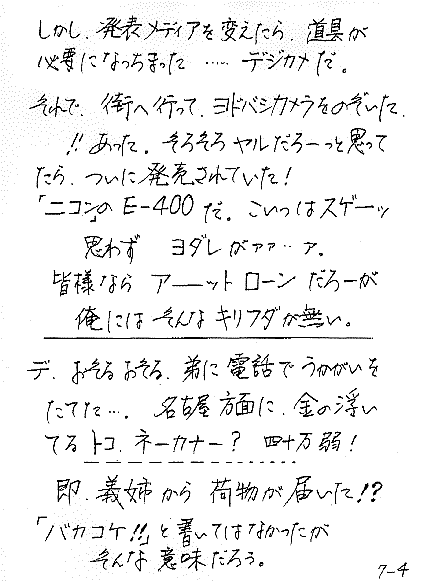 しかし、発表メディアを変えたら、道具が
必要になっちまった ‥‥‥ デジカメだ。
それで、街へ行って、ヨドバシカメラをのぞいた。
!! あった。そろそろ ヤルだろーっと思って
たら、ついに発売されていた!
「ニコン」の E-400 だ。こいつはスゲーッ
思わず ヨダレがァァ‥ァ。
皆様なら アーーットローン だろーが
俺にはそんなキリフダが無い。
デ、おそるおそる、弟に電話でうかがいを
たてた‥‥。 名古屋方面に、金の浮い
てるトコ、ネーカナー? 四十万弱!
即、義姉から 荷物が届いた!?
「バカコケ!!」と書いてはなかったが
そんな意味だろう。
7-4